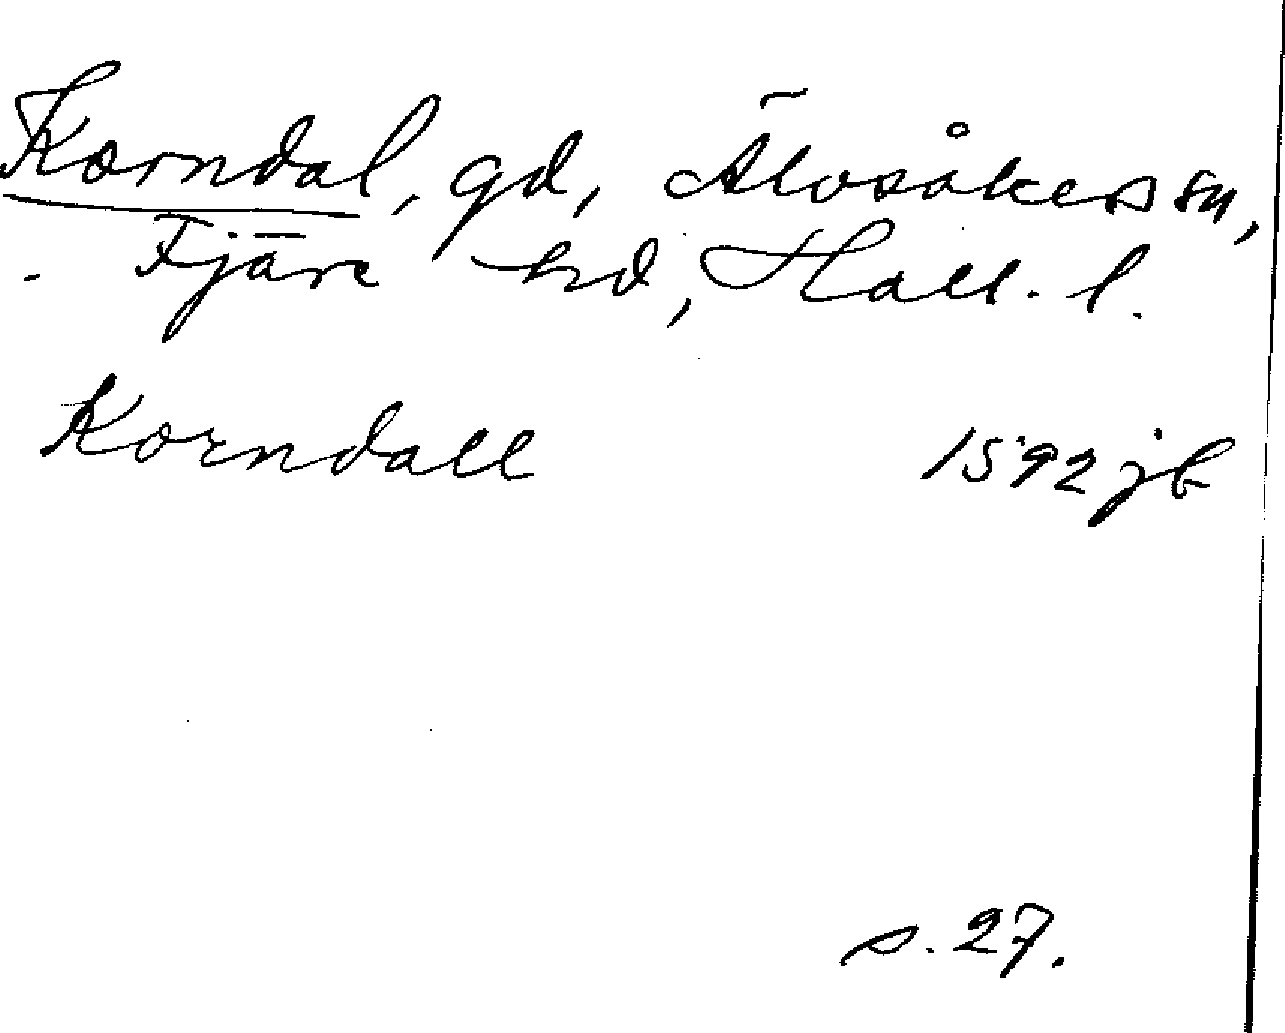 Korndal, gd, Älvsåkers sn,
Fjäre hd, Hall. l.
Korndall 1592 jb
s. 27.